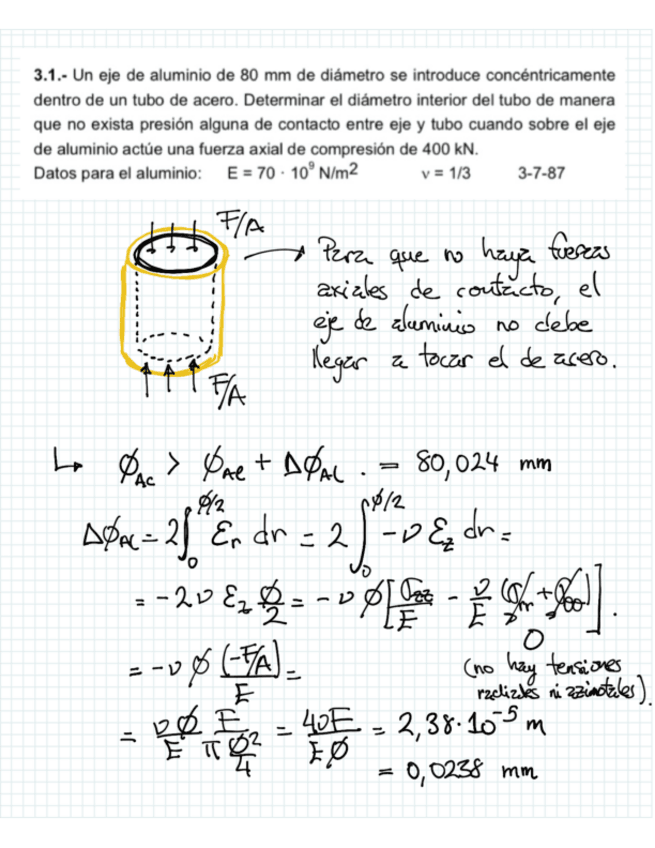 3.1.- Un eje de aluminio de 80 mm de diámetro se introduce concéntricamente
dentro de un tubo de acero. Determinar el diámetro interior del tubo de manera
que no exista presión alguna de contacto entre eje y tubo cuando sobre el eje
de aluminio actúe una fuerza axial de compresión de 400 kN.
Datos para el aluminio: E = 70 · 10⁹ N/m² ν = 1/3 3-7-87
F/A
Para que no haya fuerzas
axiales de contacto, el
eje de aluminio no debe
llegar a tocar el de acero.
F/A
↳ ø_Ac > ø_Al + Δø_Al . = 80,024 mm
Δø_Al = 2∫₀^(ø/2) ε_r dr = 2∫₀^(ø/2) -ν ε_z dr =
= -2ν ε_z ø/2 = -ν ø [σ_zz/E - ν/E (σ_rr + σ_θθ)] .
0
= -ν ø (-F/A)/E =
(no hay tensiones
radiales ni azimutales).
= νø/E F/(π ø²/4) = 4νF/Eø = 2,38·10⁻⁵ m
= 0,0238 mm